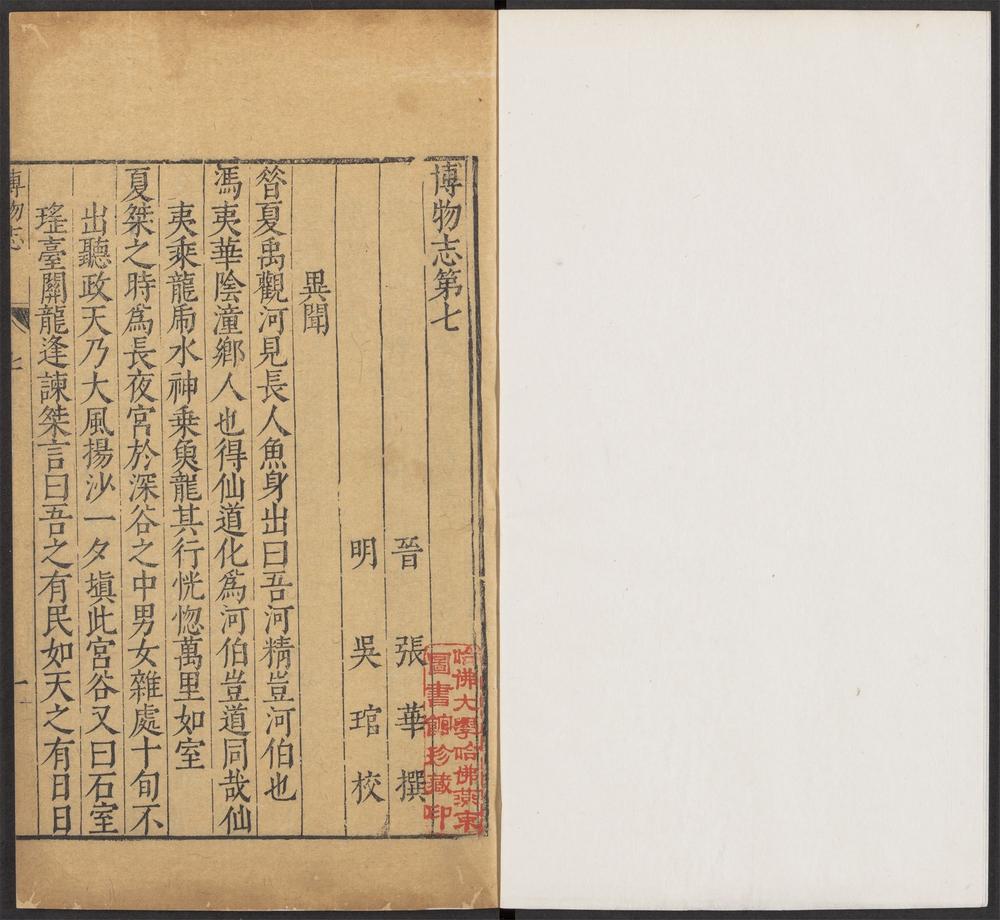 博物志第七
晉 張 華 撰
明 吳 琯 校
異聞
昝夏禹觀河見長人魚身出曰吾河精豈河伯也
馮夷華陰潼鄉人也得仙道化爲河伯豈道同哉仙
夷乘龍虎水神乘魚龍其行恍惚萬里如室
夏桀之時爲長夜宮於深谷之中男女雜處十旬不
出聽政天乃大風揚沙一夕塡此宮谷又曰石室
瑤臺關龍逢諫桀言曰吾之有民如天之有日日
博物志
七
一
哈佛大學哈佛燕京
圖書館珍藏印